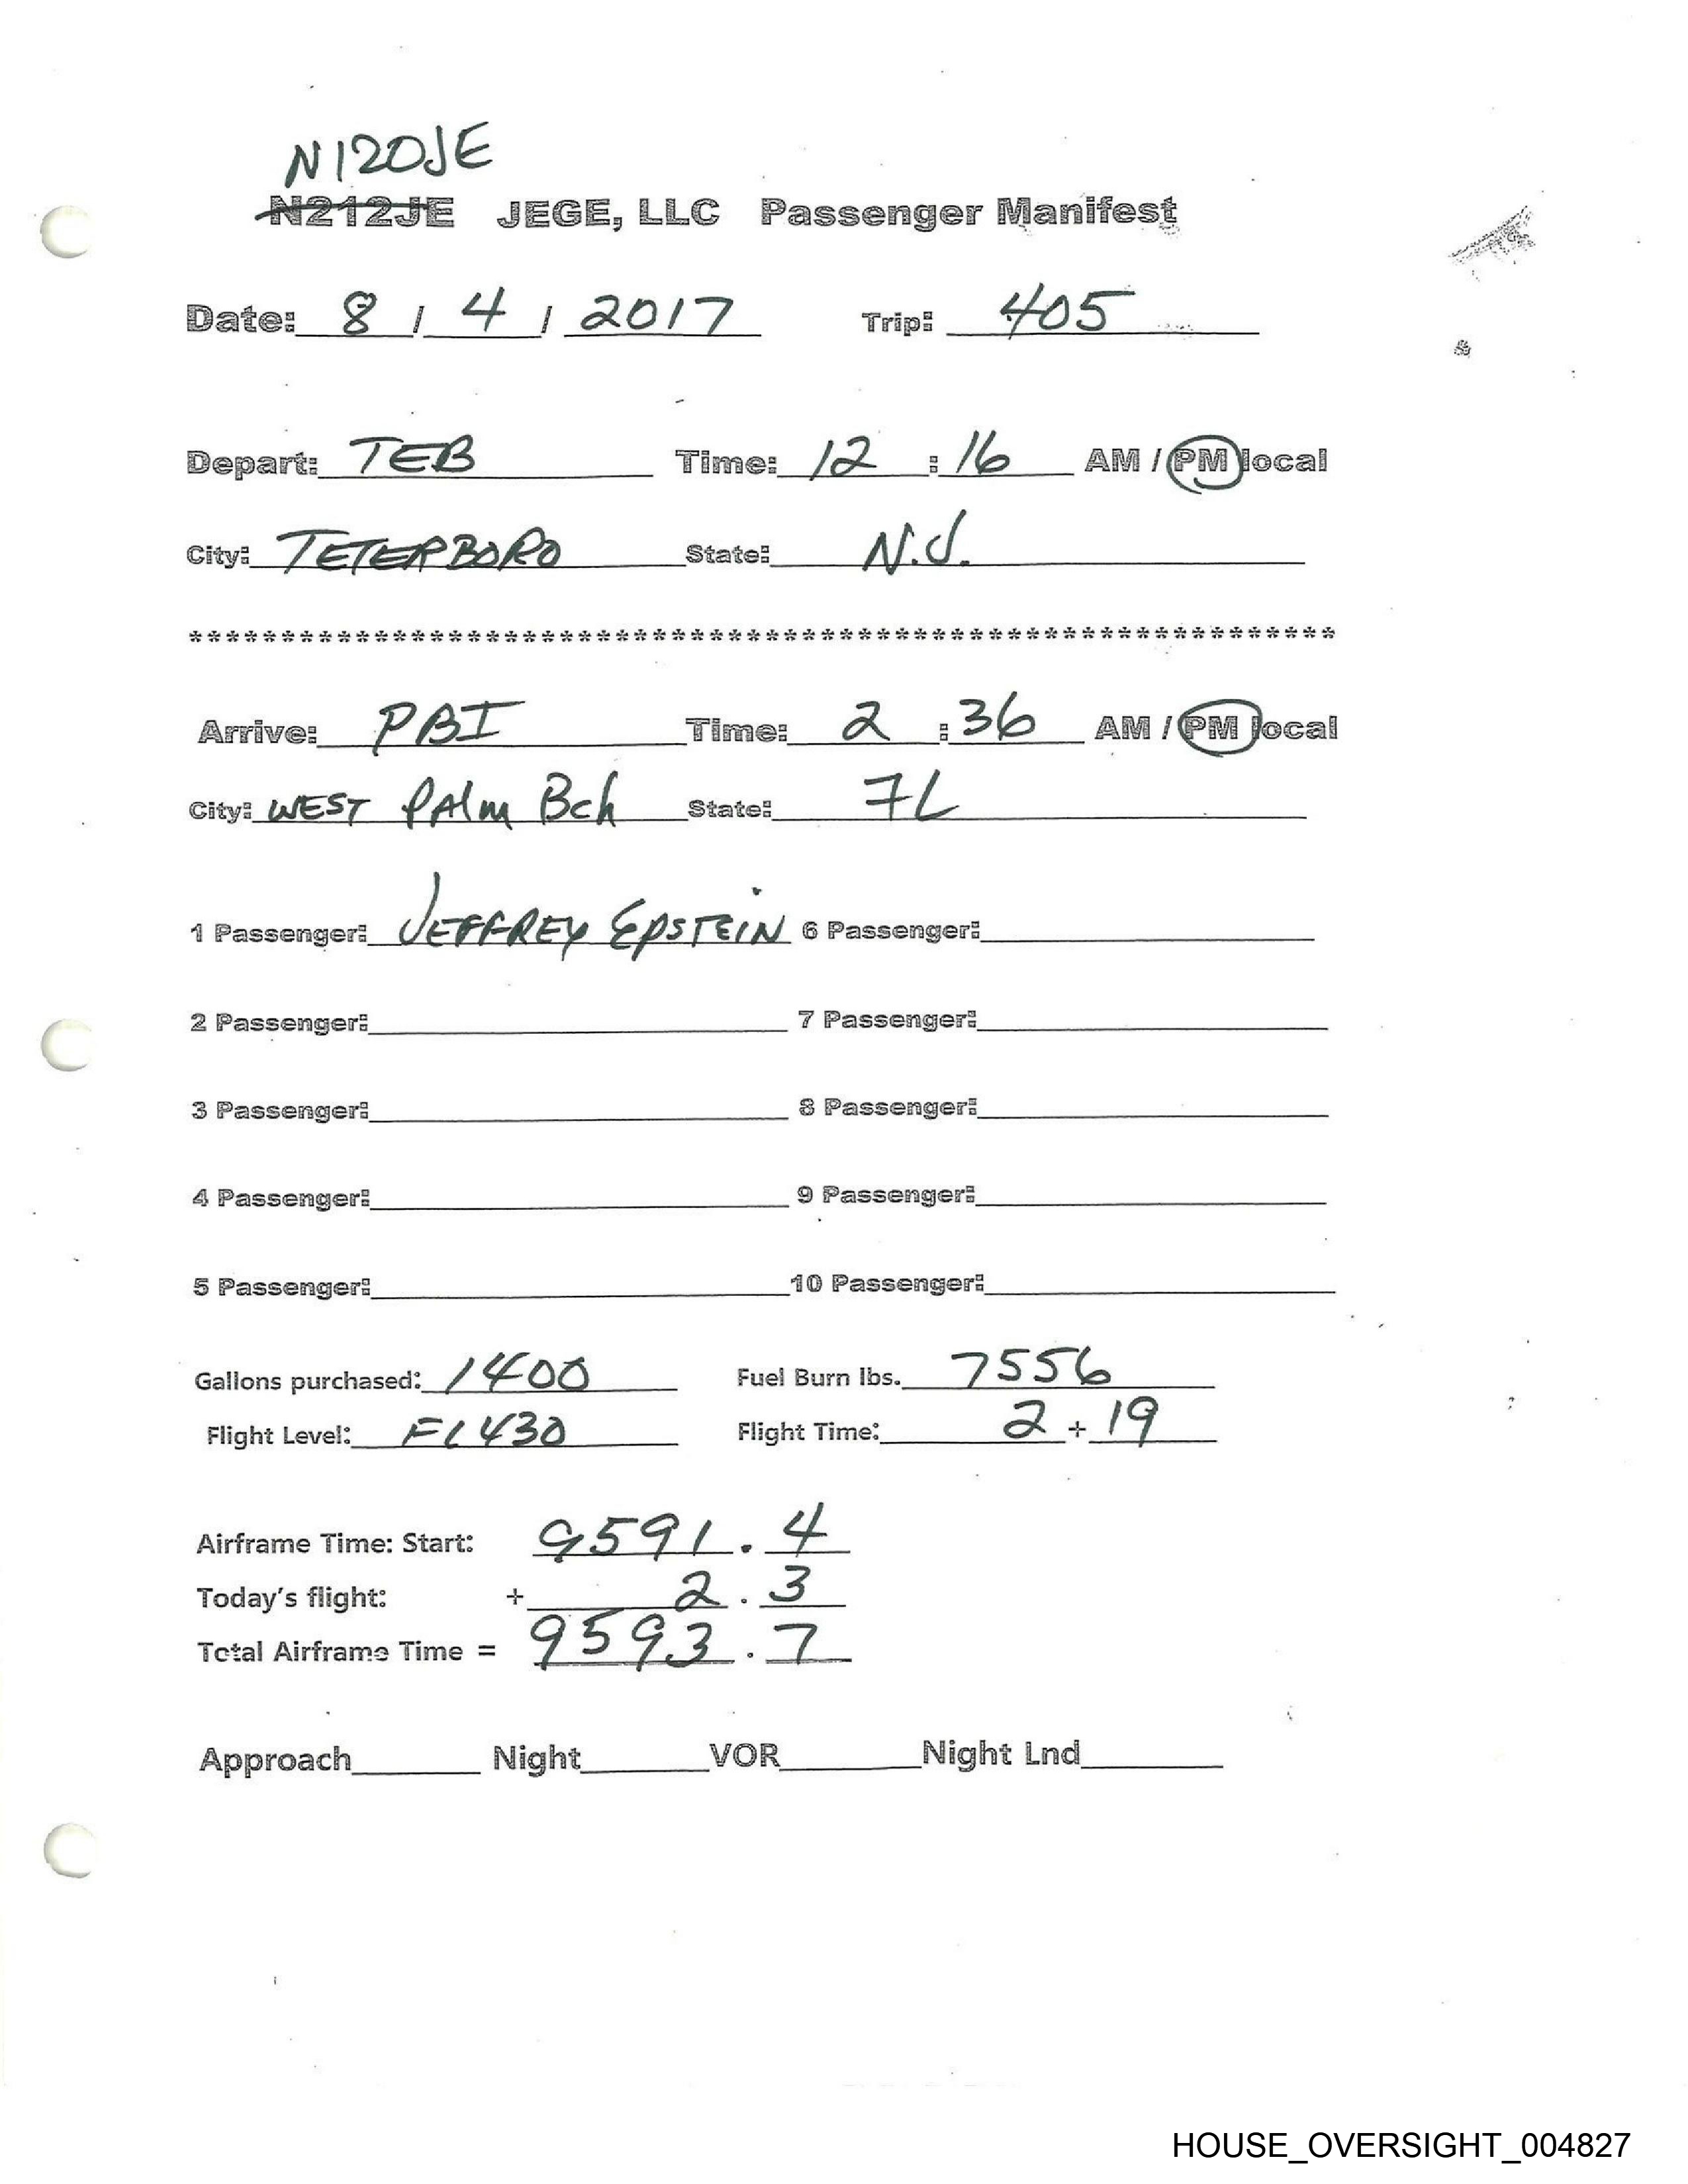 N120JE
N212JE JEGE, LLC Passenger Manifest
Date: 8 / 4 / 2017 Trip: 405
Depart: TEB Time: 12 : 16 AM / PM local
City: TETERBORO State: N.J.
**************************************************************
Arrive: PBI Time: 2 : 36 AM / PM local
City: WEST PAlm Bch State: FL
1 Passenger: JEFFREY EPSTEIN 6 Passenger:
2 Passenger: 7 Passenger:
3 Passenger: 8 Passenger:
4 Passenger: 9 Passenger:
5 Passenger: 10 Passenger:
Gallons purchased: 1400 Fuel Burn lbs. 7556
Flight Level: FL430 Flight Time: 2 + 19
Airframe Time: Start: 9591 . 4
Today's flight: + 2 . 3
Total Airframe Time = 9593 . 7
Approach Night VOR Night Lnd
HOUSE_OVERSIGHT_004827